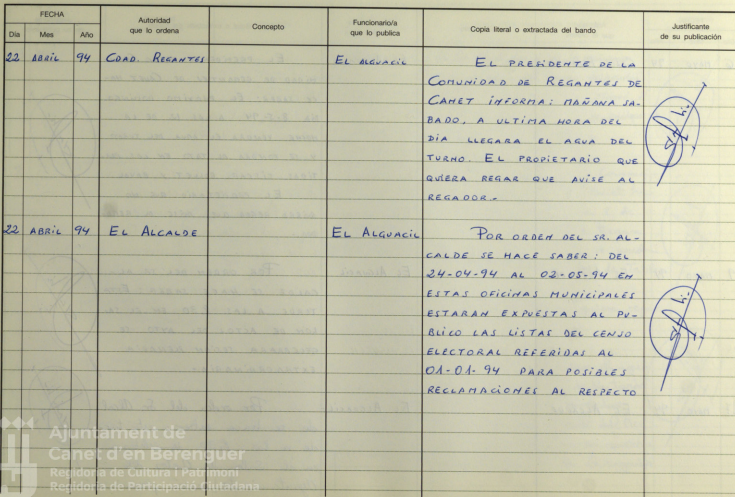 FECHA
Autoridad
que lo ordena
Concepto
Funcionario/a
que lo publica
Copia literal o extractada del bando
Justificante
de su publicación
Día Mes Año
22 ABRIL 94 CDAD. REGANTES EL ALGUACIL EL PRESIDENTE DE LA
COMUNIDAD DE REGANTES DE
CANET INFORMA: MAÑANA SA-
BADO, A ULTIMA HORA DEL
DIA LLEGARA EL AGUA DEL
TURNO. EL PROPIETARIO QUE
QUIERA REGAR QUE AVISE AL
REGADOR.-
22 ABRIL 94 EL ALCALDE EL ALGUACIL POR ORDEN DEL SR. AL-
CALDE SE HACE SABER: DEL
24-04-94 AL 02-05-94 EN
ESTAS OFICINAS MUNICIPALES
ESTARAN EXPUESTAS AL PU-
BLICO LAS LISTAS DEL CENSO
ELECTORAL REFERIDAS AL
01-01-94 PARA POSIBLES
RECLAMACIONES AL RESPECTO
Ajuntament de
Canet d'en Berenguer
Regidoria de Cultura i Patrimoni
Regidoria de Participació Ciutadana